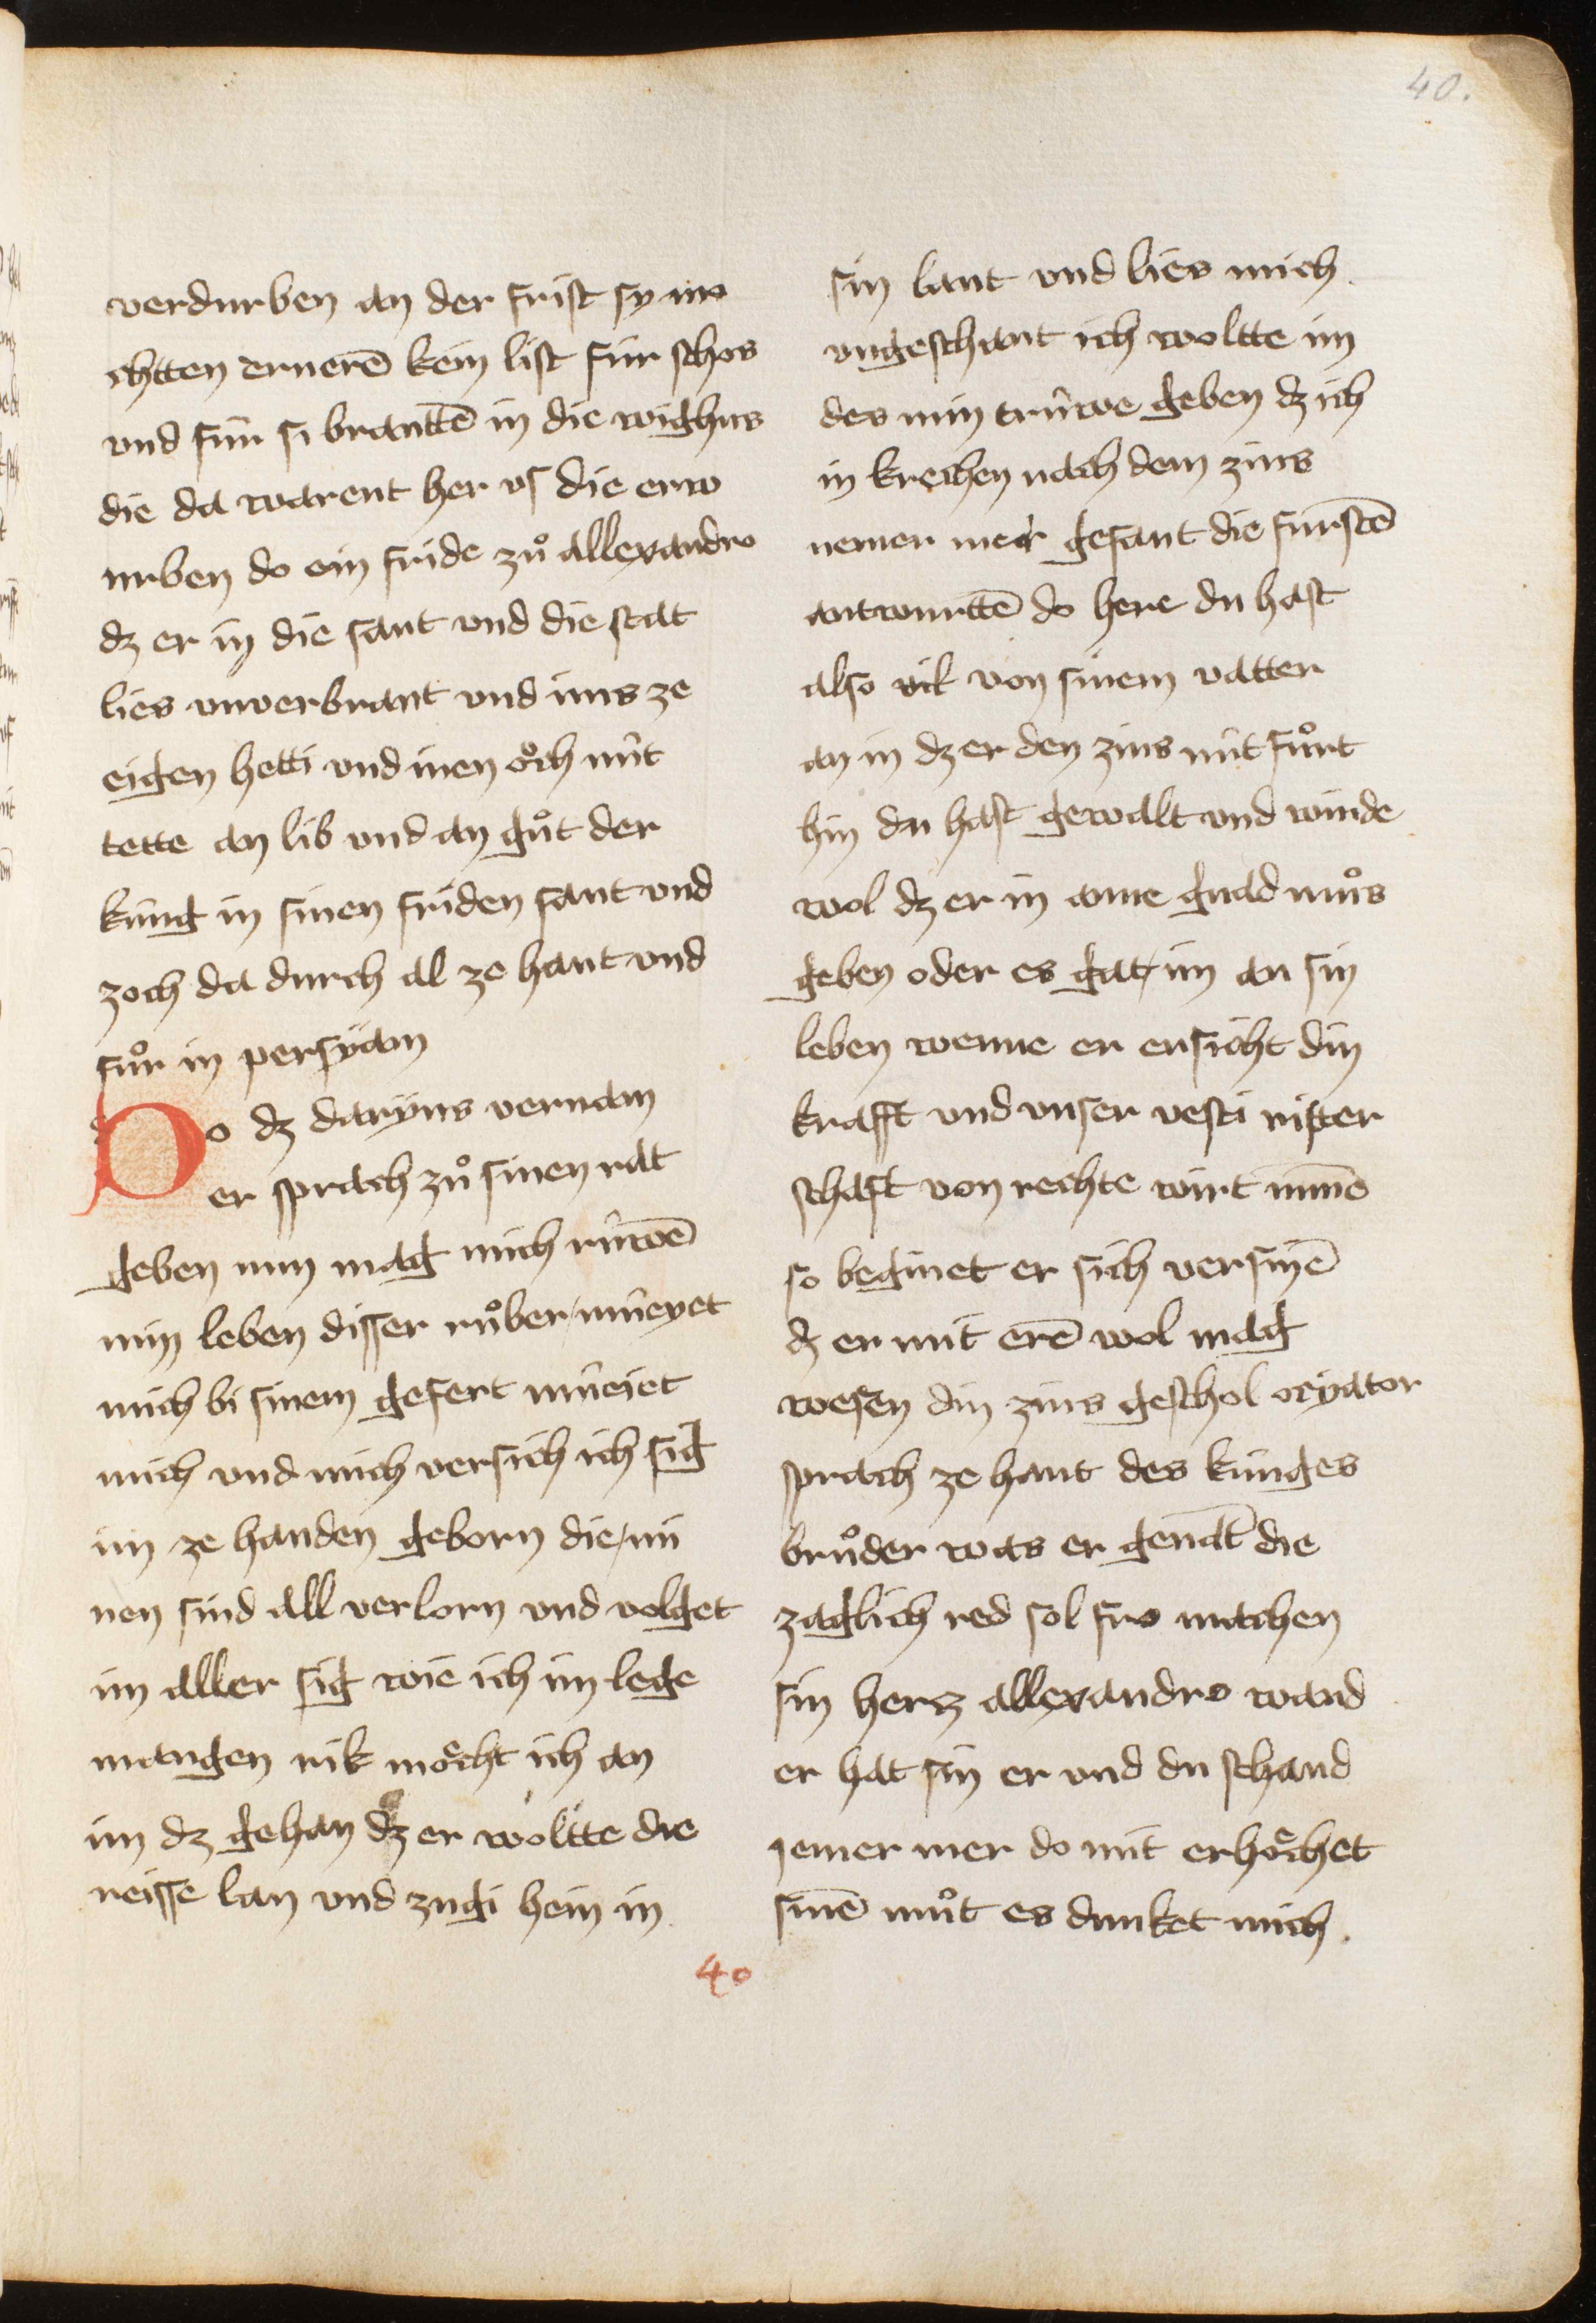 40.
verdurben an der frist sy mo
chtten ernerē kein list fúr schos
vnd fúr si brantē in die wighus
die da warent her vs die erw
urben do ein fride zů allexandro
dz er in die sant vnd die stat
lies vnverbrant vnd ims ze
eigen hetti vnd inen och nút
tette an lib vnd an gůt der
kúng in sinen friden sant vnd
zoch da durch al ze hant vnd
fůr in persyam
Do dz daryus vernam
er sprach zů sinen rat
geben nun mag mich rúwē
min leben disser rober múeyet
mich bi sinem gefert múeiet
mich vnd mich versich ich sig
im ze handen geborn die mi
nen sind all verlorn vnd volget
im aller sig wie ich im lege
mangen rik mocht ich an
im dz gehan dz er woltte die
reisse lan vnd zugi hein in
40
sin lant vnd lies mich
vngeschant ich woltte im
des min trúwe geben dz ich
in krechen nach dem zins
nemer mer gesant die fúrstē
antwurttē do here du hast
also vil von sinem vatter
an in dz er den zins nút fůrt
hin du hast gewalt vnd winde
wol dz er in anne gnad můs
geben oder es gat im an sin
leben wenne er ensicht din
krafft vnd vnser vesti ritter
schaft von rechte wirt
so beginet er sich versinē
dz er mit erē wol mag
wesen din zins geschol ocyator
sprach ze hant des kúnges
brůder was er genāt die
zaglich red sol fro machen
sin hercz allexandro wand
er hat sin er vnd du schand
jemer mer do mit erhochet
sinē můt es dunket mich